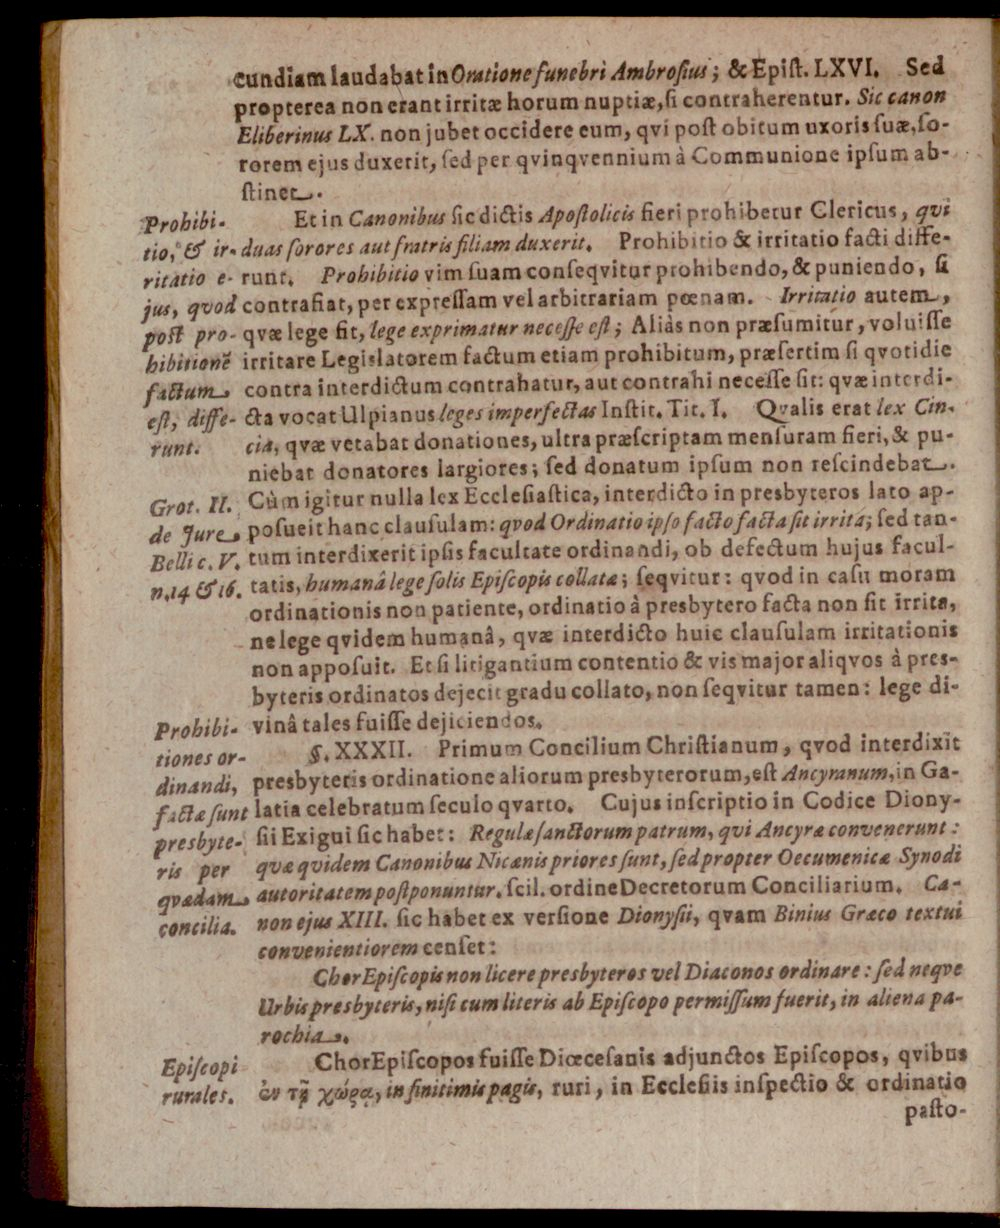 cundiam laudabat in Oratione funebri Ambrosius; & Epist. LXVI. Sed
propterea non erant irritæ horum nuptiæ, si contraherentur. Sic canon
Eliberinus LX. non jubet occidere eum, qvi post obitum uxoris suæ, so-
rorem ejus duxerit, sed per qvinqvennium à Communione ipsum ab-
stinet.
Et in Canonibus sic dictis Apostolicis fieri prohibetur Clericus, qvi
duas sorores aut fratris filiam duxerit. Prohibitio & irritatio facti diffe-
runt. Prohibitio vim suam conseqvitur prohibendo, & puniendo, si
contrafiat, per expressam vel arbitrariam pœnam. Irritatio autem,
qvæ lege fit, lege exprimatur necesse est; Aliàs non præsumitur, voluisse
irritare Legislatorem factum etiam prohibitum, præsertim si qvotidie
contra interdictum contrahatur, aut contrahi necesse sit: qvæ interdi-
cta vocat Ulpianus leges imperfectas Instit. Tit. I. Qvalis erat lex Cin-
cia, qvæ vetabat donationes, ultra præscriptam mensuram fieri, & pu-
niebat donatores largiores; sed donatum ipsum non rescindebat.
Cùm igitur nulla lex Ecclesiastica, interdicto in presbyteros lato ap-
posueit hanc clausulam: qvod Ordinatio ipso facto facta sit irrita; sed tan-
tum interdixerit ipsis facultate ordinandi, ob defectum hujus facul-
tatis, humanâ lege solis Episcopis collatæ; seqvitur: qvod in casu moram
ordinationis non patiente, ordinatio à presbytero facta non sit irrita,
ne lege qvidem humanâ, qvæ interdicto huic clausulam irritationis
non apposuit. Et si litigantium contentio & vis major aliqvos à pres-
byteris ordinatos dejecit gradu collato, non seqvitur tamen: lege di-
vinâ tales fuisse dejiciendos.
§. XXXII. Primum Concilium Christianum, qvod interdixit
presbyteris ordinatione aliorum presbyterorum, est Ancyranum, in Ga-
latia celebratum seculo qvarto. Cujus inscriptio in Codice Diony-
sii Exigui sic habet: Regulæ sanctorum patrum, qvi Ancyræ convenerunt:
qvæ qvidem Canonibus Nicænis priores sunt, sed propter Oecumenicæ Synodi
autoritatem postponuntur. scil. ordine Decretorum Conciliarium. Ca-
non ejus XIII. sic habet ex versione Dionysii, qvam Binius Græco textui
convenientiorem censet:
ChorEpiscopis non licere presbyteros vel Diaconos ordinare: sed neqve
Urbis presbyteris, nisi cum literis ab Episcopo permissum fuerit, in aliena pa-
rochia.
ChorEpiscopos fuisse Diœcesanis adjunctos Episcopos, qvibus
ἐν τῇ χώρᾳ, in finitimis pagis, ruri, in Ecclesiis inspectio & ordinatio
pasto-
Prohibi-
tio, & ir-
ritatio e-
jus, qvod
post pro-
hibitionẽ
factum
est, diffe-
runt.
Grot. II.
de Jure
Belli c. V.
n. 14 & 16.
Prohibi-
tiones or-
dinandi,
factæ sunt
presbyte-
ris per
qvædam
concilia.
Episcopi
rurales.